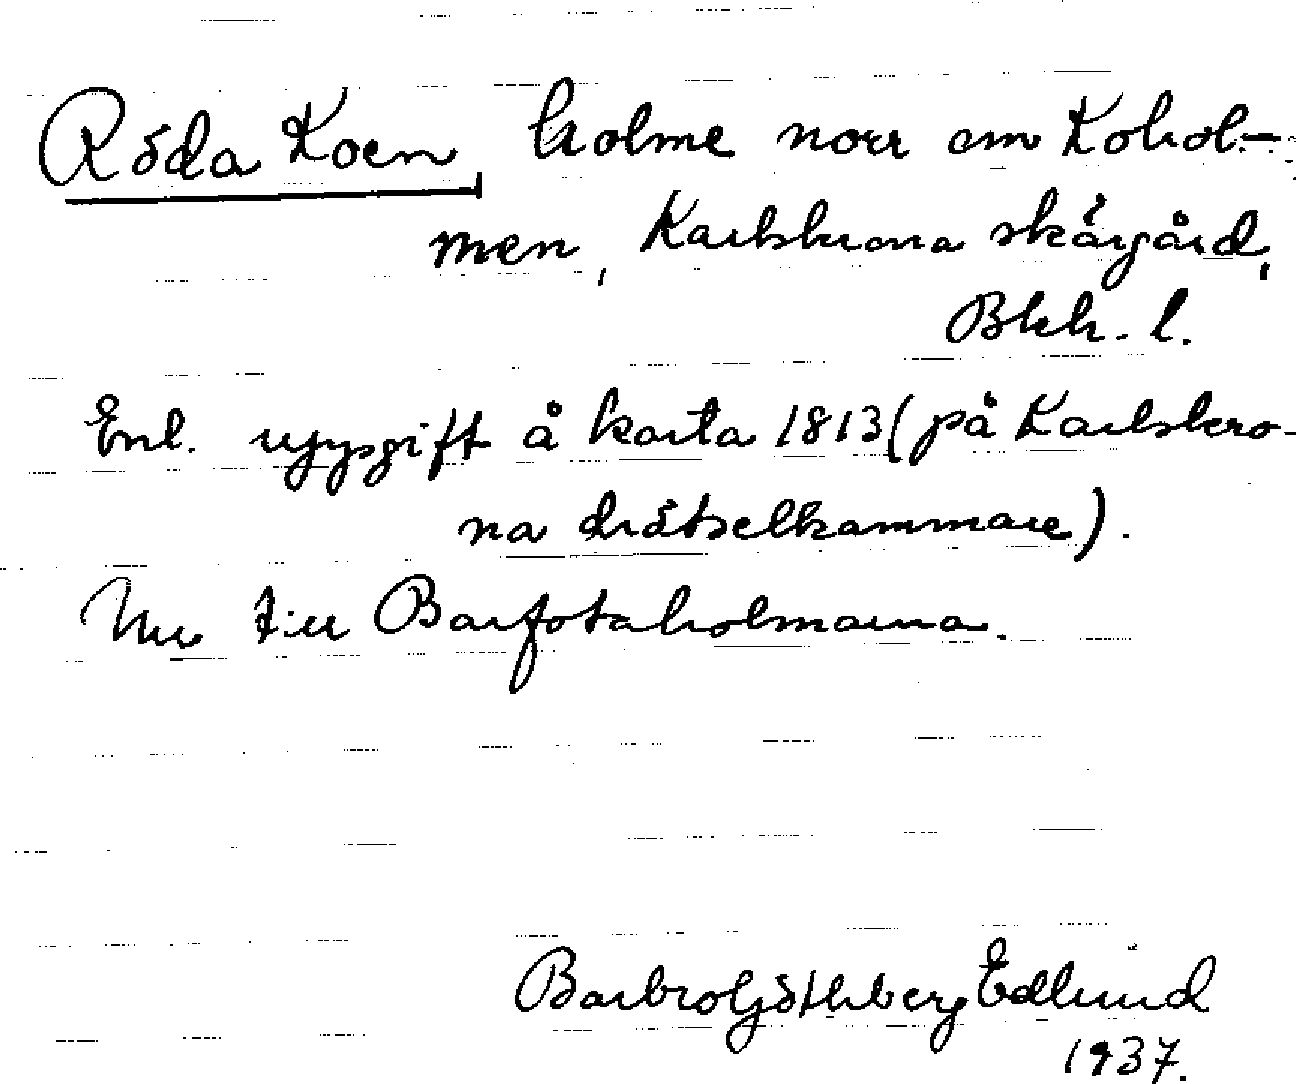 Röda Koen, holme norr om Kohol-
men, Karlskrona skärgård,
Blek. l.
Enl. uppgift å karta 1813 (på Karlskro-
na drätselkammare).
Nu till Barfotaholmarna.
Barbro Göthberg Edlund
1937.